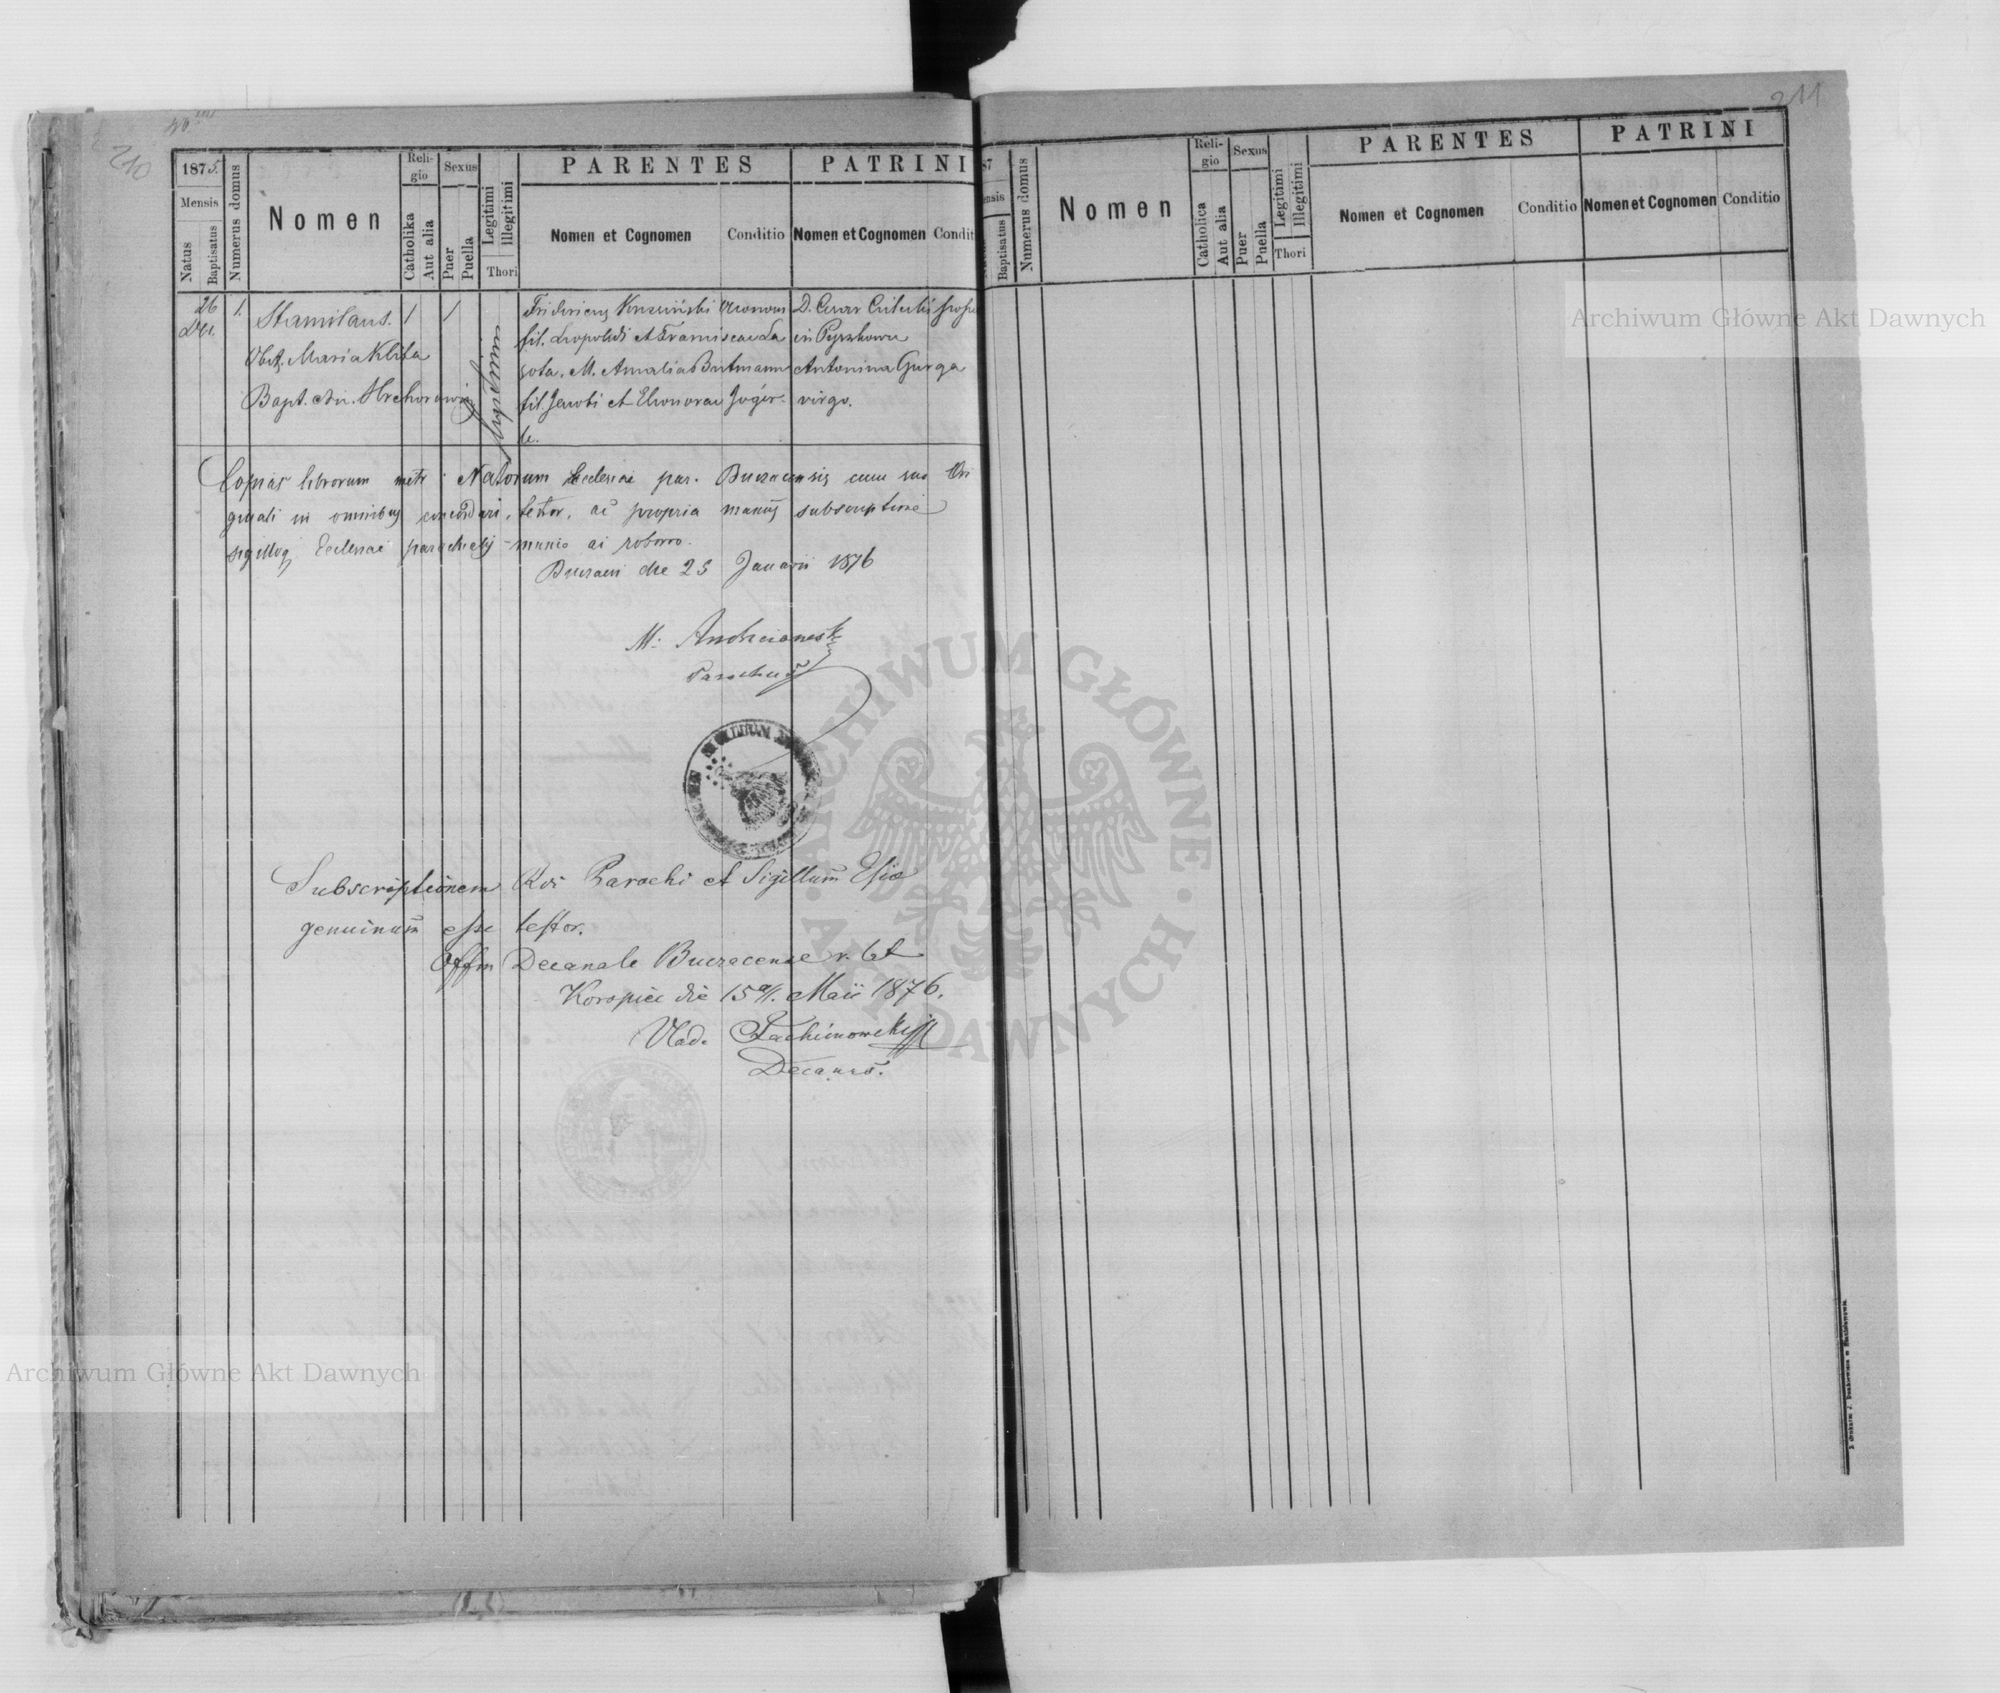 210
211
1875.
Mensis
Natus
Baptisatus
Numerus domus
Nomen
Religio
Catholika
Aut alia
Sexus
Puer
Puella
Legitimi
Illegitimi
Thori
PARENTES
Nomen et Cognomen
Conditio
PATRINI
Nomen et Cognomen
Condit
26
1.
Stanislaus.
1
1
legitimi
Obst. Maria Klita
Bapt. Adm.
fil. Leopoldi et Franciscae La
sota. M. Amalia Butmann
fil. Jacobi et Eleonorae
D. Cesar
in Pyszkowce
Antonina Gurga
virgo.
Copias librorum metr. Natorum Ecclesiae par. Buczacensis cum suo Ori
ginali in omnibus concordari, testor, ac propria manus subscriptione
sigilloq Ecclesiae parochialis munio ac roboro.
Buczacii die 25 Januarii 1876
M.
Parochus
SIGILLUM
Subscriptionem Rdi Parochi et Sigillum Esiae
genuinum esse testor.
Offm Decanale Buczacense r. lat
Koropiec die 15 Maii 1876.
Vlad.
Decanus.
87
ensis
Baptisatus
Numerus domus
Nomen
Religio
Catholica
Aut alia
Sexus
Puer
Puella
Legitimi
Illegitimi
Thori
PARENTES
Nomen et Cognomen
Conditio
PATRINI
Nomen et Cognomen
Conditio
Archiwum Główne Akt Dawnych
ARCHIWUM GŁÓWNE AKT DAWNYCH
Archiwum Główne Akt Dawnych